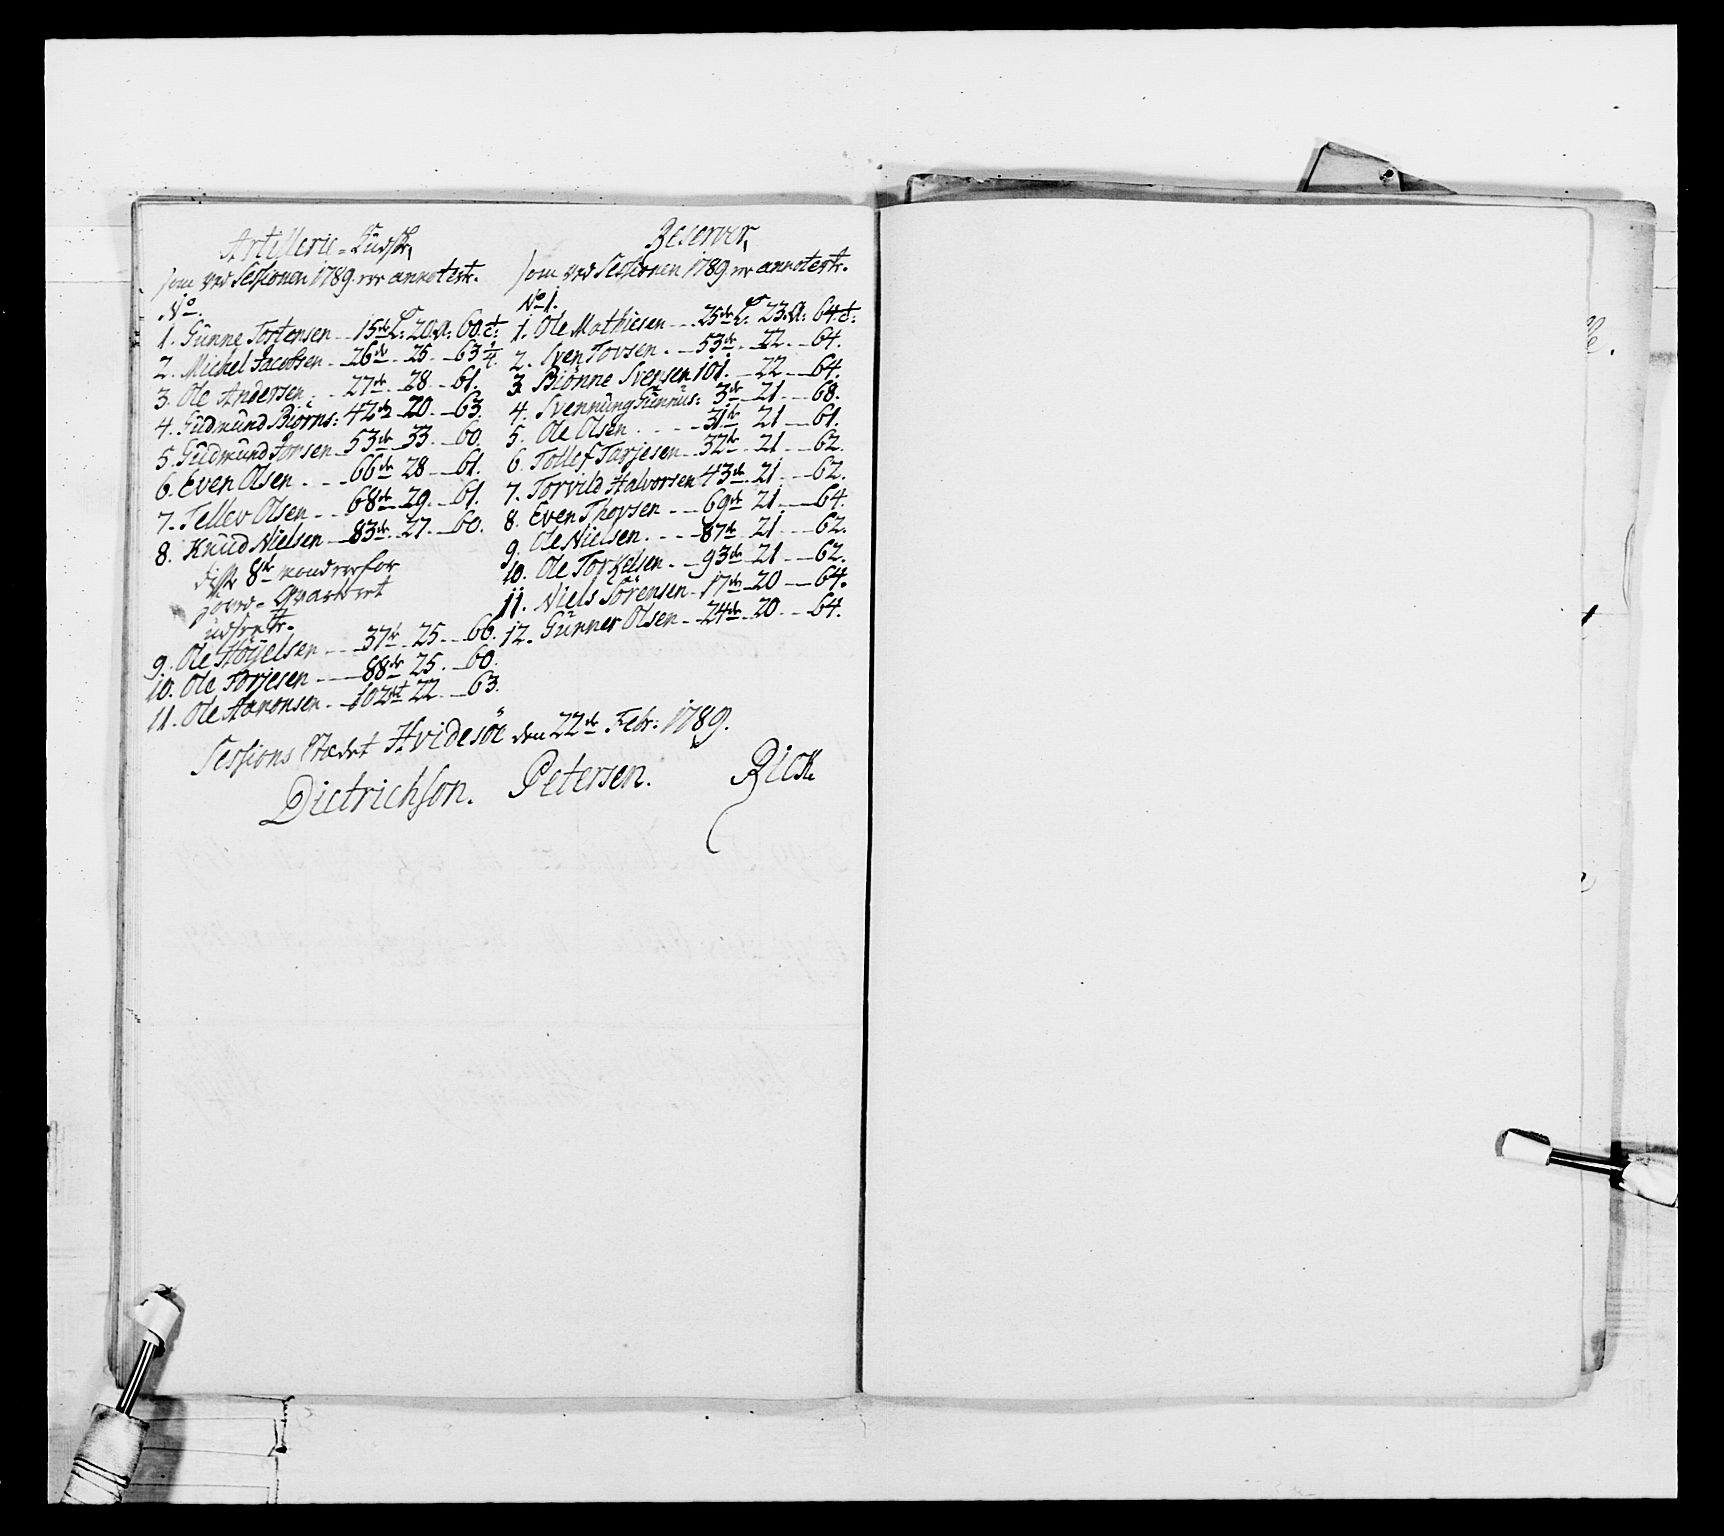 Artillerie-Kudske,
som ved Sessionen 1789 er annoterte.
No.
1. Gunne Tortensen 15de L: 20 A: 60 T:
2. Michel Jacobsen 26de 25 63 1/4
3. Ole Andersen 27de 28 61.
4. Gudmund Biörns: 42de 20 63.
5. Gudmund Jonsen 53de 33 60.
6. Even Olsen 66de 28 61.
7. Tellev Olsen 68de 29 61.
8. Knud Nielsen 83de 27 60.
disse 8te
udsætte.
9. Ole Höyelsen 37te 25 66.
10. Ole Torjesen 88de 25 60.
11. Ole Aanonsen 102det 22 63.
Reserver,
som ved Sessionen 1789 er annoterte.
No 1.
1. Ole Mathiesen 25de L: 23 A: 64 T:
2. Sven Tovsen 53de 22 64.
3. Biönne Svensen 101. 22 64.
4. Svennung Gunnus: 3de 21 68.
5. Ole Olsen 31te 21 61.
6. Tollef Tarjesen 32te 21 62.
7. Torvild Halvorsen 43de 21 62.
8. Even Thovsen 69de 21 64.
9. Ole Nielsen 87de 21 62.
10. Ole Torkelsen 93de 21 62.
11. Niels Sörensen 17de 20 64.
12. Gunner Olsen 24de 20 64.
Sessions Stædet Hvidesöe den 22de Febr: 1789.
Dietrichson. Petersen. Rick